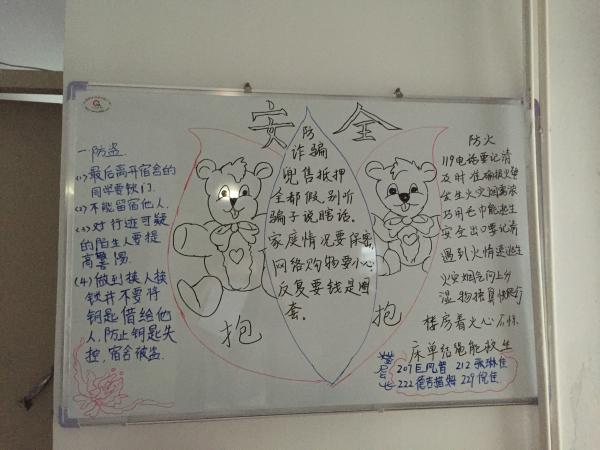 安全
一防盗
(1)最后离开宿舍的
同学要锁门.
(2)不能留宿他人.
(3)对行迹可疑
的陌生人要提
高警惕.
(4)做到换人换
锁并不要将
钥匙借给他
人,防止钥匙失
控,宿舍被盗.
防
诈骗
兜售抵押
全都假,别听
骗子说瞎话。
家庭情况要保密
网络购物要小心
反复要钱是圈
套。
抱
抱
防火
119电话要记清
及时准确报火警
发生火灾烟雾浓
巧用毛巾能逃生
安全出口要记清
遇到火情速逃生
火灾烟气向上分
湿物捂鼻快爬行
楼房着火心不惊
床单结绳能救生
207巨凤智 212
222德吉 229倪佳